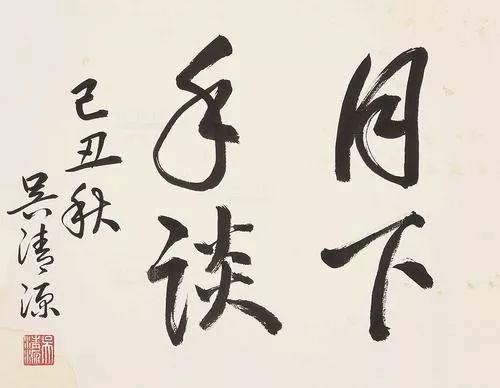 月下
手談
己丑秋
吴清源
吴清源